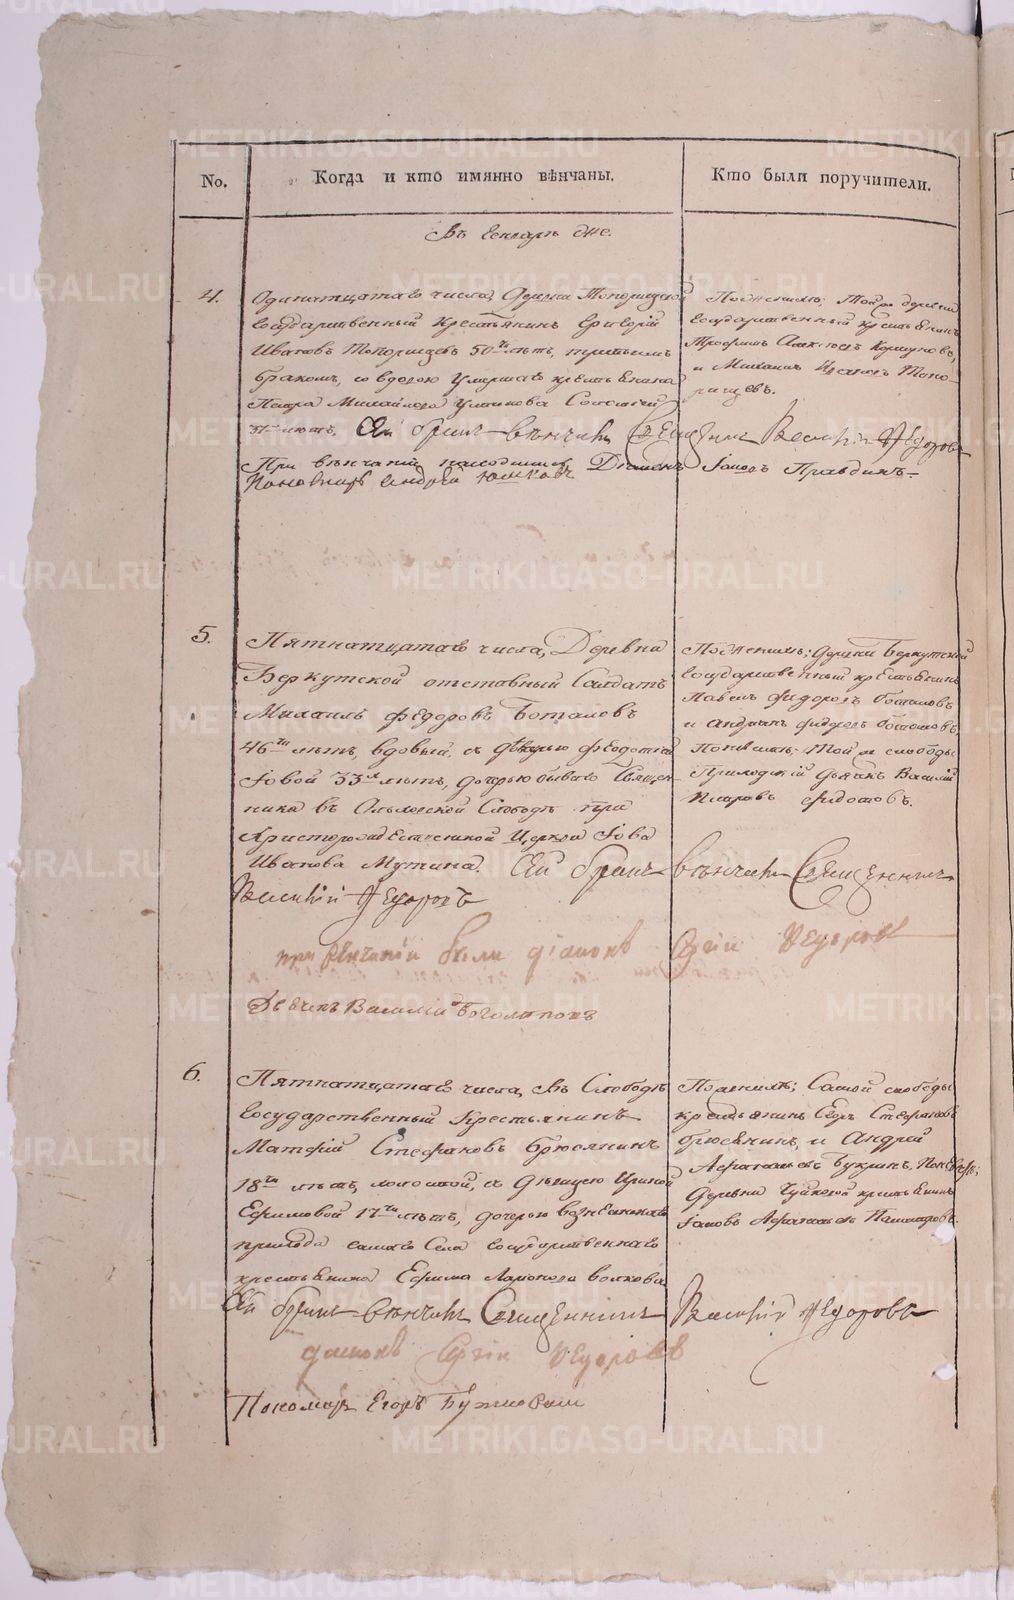 No.
Когда и кто имянно вѣнчаны.
Кто были поручители.
Въ Генварѣ Же.
4.
Одинатцатаго числа, Деревни Топорищевой
Государственный Крестьянинъ Григорій
Ивановъ Топорищевъ 50ти лѣтъ, третьимъ
бракомъ, со вдовою умершаго крестьянина
Петра Михайлова
лѣтъ. Сей бракъ вѣнчалъ Священникъ Василій Федоровъ
При вѣнчаніи находились Діаконъ Іаковъ Правдинъ
Пономарь Андрей
По женихѣ; Тойже деревни
Государственный крестьянинъ
Трофимъ Коршуновъ,
и Михаилъ Ивановъ Топо-
рищевъ.
5.
Пятнатцатаго числа, Деревни
Беркутской отставный Салдатъ
Михаилъ Федоровъ Боталовъ
46ти лѣтъ, вдовый, съ дочерью Феодосіею
Іовой 33х лѣтъ, дочерью бывшаго Священ-
ника въ Слободѣ при
Христорождественской Церкви Іова
Иванова Мутина. Сей бракъ вѣнчалъ Священникъ
Василій Федоровъ
при вѣнчаніи были діаконъ Сергій Федоровъ
Дьячекъ Василій Боголѣповъ
По женихѣ; Деревни Беркутской
Государственный крестьянинъ
Павелъ Федоровъ Боталовъ
и Андрианъ Федоровъ Боталовъ,
По невѣстѣ; Той же слободы
Приходскій дьячекъ Василій
Петровъ Федотовъ.
6.
Пятнатцатаго числа, Въ Слободѣ
Государственный Крестьянинъ
Матфій Стефановъ Брюсянинъ
18ти лѣтъ, холостой, съ дѣвицею Ириной
Ефимовой 17ти лѣтъ, дочерью Вознесенскаго
прихода самаго Села Государственнаго
крестьянина Ефима Ларионова Волкова
Сей бракъ вѣнчалъ Священникъ Василій Федоровъ
діаконъ Сергій Федоровъ
Пономарь Егоръ
По женихѣ; Самой слободы
крестьянинъ Егоръ Стефановъ
Брюсянинъ, и Андрей
Афанасьевъ Букринъ, По невѣстѣ;
Деревни крестьянинъ
Іаковъ Афанасьевъ
METRIKI.GASO-URAL.RU